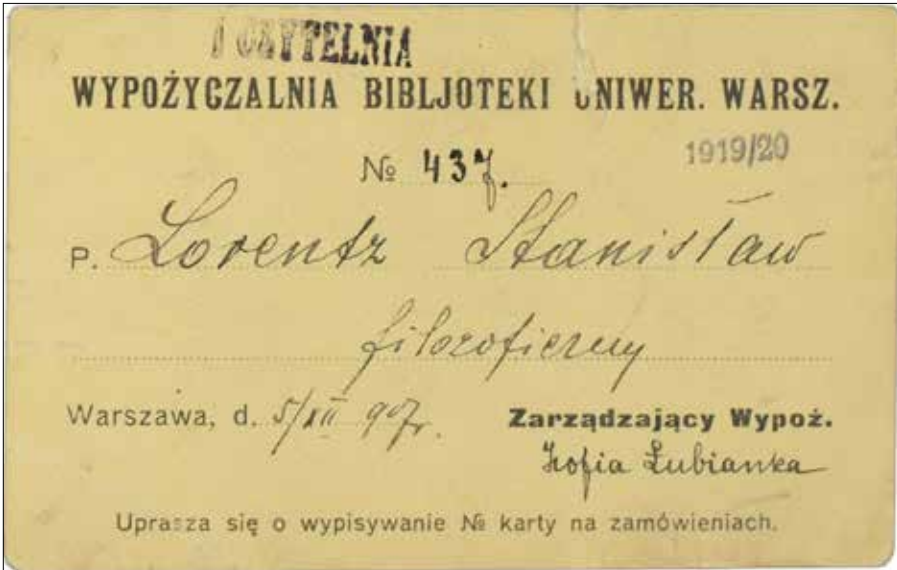 I CZYTELNIA
WYPOŻYCZALNIA BIBLJOTEKI UNIWER. WARSZ.
№ 437. 1919/20
P. Lorentz Stanisław
filozoficzny
Warszawa, d. Zarządzający Wypoż.
Zofia Łubianka
Uprasza się o wypisywanie № karty na zamówieniach.